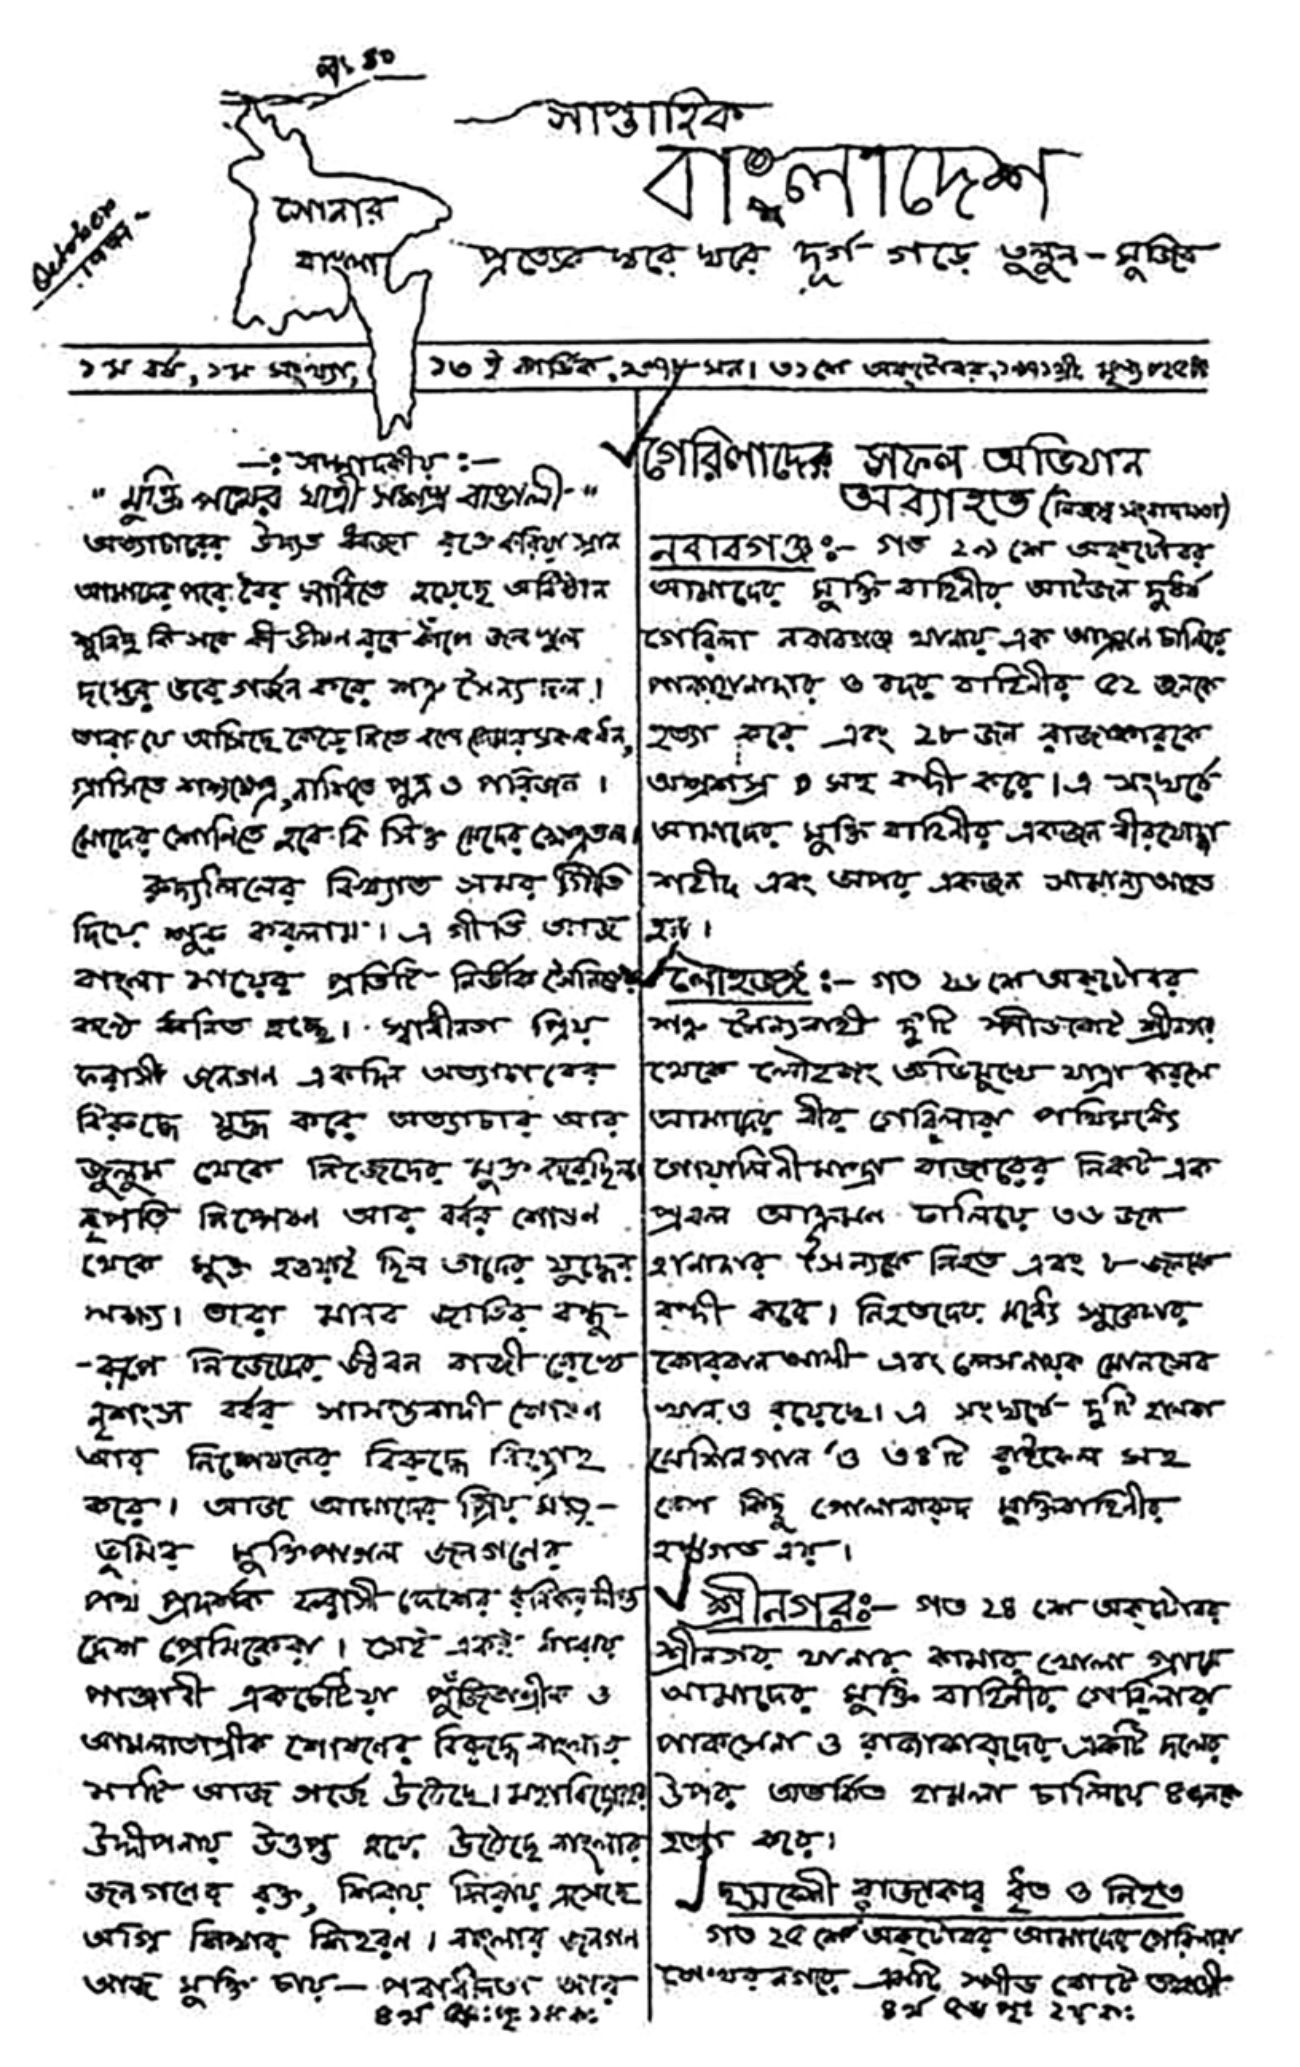 নং ৪০
সাপ্তাহিক
বাংলাদেশ
সোনার
বাংলা
October
প্রত্যেক ঘরে ঘরে দুর্গ গড়ে তুলুন - মুজিব
১ম বর্ষ, ১ম সংখ্যা, ১৩ ই কার্তিক, ১৩৭৮ সন। ৩১শে অক্টোবর, ১৯৭১খ্রীঃ মূল্য
-: সম্পাদকীয় :-
" মুক্তি পথের যাত্রী সশস্ত্র বাঙালী "
অত্যাচারের উদ্যত ধ্বজা করিয়া
আমাদের পরে বৈর সাধিতে হয়েছে অধিষ্ঠান
শুনিছ কি সবে কী ভীষণ রবে কাঁপে জল স্থল
দম্ভের ভরে গর্জন করে শত্রু সৈন্য দল।
তারা যে আসিছে কেড়ে নিতে
গ্রাসিতে শস্যক্ষেত্র, নাশিতে পুত্র ও পরিজন ।
মোদের শোনিতে হবে কি সিক্ত মোদের ক্ষেত্রতল।
বিখ্যাত সমর গীতি
দিয়ে শুরু করলাম। এ গীতি আজ
বাংলা মায়ের প্রতিটি নির্ভীক সৈনিকের
কণ্ঠে ধ্বনিত হচ্ছে। স্বাধীনতা প্রিয়
ফরাসী জনগন একদিন অত্যাচারের
বিরুদ্ধে যুদ্ধ করে অত্যাচার আর
জুলুম থেকে নিজেদের মুক্ত করেছিল।
নৃপতি নিষ্পেষণ আর বর্বর শোষণ
থেকে মুক্ত হওয়াই ছিল তাদের যুদ্ধের
লক্ষ্য। তারা মানব জাতির বন্ধু-
-রূপে নিজেদের জীবন বাজী রেখে
নৃশংস বর্বর সামন্তবাদী শোষণ
আর নিষ্পেষনের বিরুদ্ধে বিদ্রোহ
করে। আজ আমাদের প্রিয় মাতৃ-
ভূমির মুক্তিপাগল জনগণের
পথ প্রদর্শক ফরাসী দেশের
দেশ প্রেমিকেরা। সেই একই ধারায়
পাঞ্জাবী একচেটিয়া পুঁজিতান্ত্রীক ও
আমলাতান্ত্রীক শোষণের বিরুদ্ধে বাংলার
মাটি আজ গর্জে উঠেছে। মহাবিদ্রোহের
উদ্দীপনায় উত্তপ্ত হয়ে উঠেছে বাংলার
জনগণের রক্ত, শিরায় শিরায় এসেছে
অগ্নি শিখার শিহরণ। বাংলার জনগন
আজ মুক্তি চায় — পরাধীনতা আর
গেরিলাদের সফল অভিযান
অব্যাহত (নিজস্ব সংবাদদাতা)
নবাবগঞ্জঃ- গত ২৯ শে অক্টোবর
আমাদের মুক্তি বাহিনীর আটজন দুর্ধর্ষ
গেরিলা নবাবগঞ্জ থানায় এক আক্রমন চালিয়ে
পাকহানাদার ও বদর বাহিনীর ৫২ জনকে
হত্যা করে এবং ২৮ জন রাজাকারকে
অস্ত্রশস্ত্র সহ বন্দী করে। এ সংঘর্ষে
আমাদের মুক্তি বাহিনীর একজন বীরযোদ্ধা
শহীদ এবং অপর একজন সামান্য আহত
হয়।
লৌহজঙ্গঃ- গত ২৬ শে অক্টোবর
শত্রু সৈন্যবাহী দু'টি স্পীডবোট শ্রীনগর
থেকে লৌহজং অভিমুখে যাত্রা করলে
আমাদের বীর গেরিলারা পথিমধ্যে
গোয়ালিনীমান্দ্রা বাজারের নিকট এক
প্রবল আক্রমন চালিয়ে ৩৬ জন
হানাদার সৈন্যকে নিহত এবং ৮ জনকে
বন্দী করে। নিহতদের মধ্যে সুবেদার
কোরবান আলী এবং লেসনায়ক মোনসেব
খান ও রয়েছে। এ সংঘর্ষে দু'টি হালকা
মেশিনগান ও ৩৪টি রাইফেল সহ
বেশ কিছু গোলাবারুদ মুক্তিবাহিনীর
হস্তগত হয়।
শ্রীনগরঃ- গত ২৪ শে অক্টোবর
শ্রীনগর থানার কামার খোলা গ্রামে
আমাদের মুক্তি বাহিনীর গেরিলারা
পাকসেনা ও রাজাকারদের একটি দলের
উপর অতর্কিত হামলা চালিয়ে
হত্যা করে।
ছদ্মবেশী রাজাকার ধৃত ও নিহত
গত ২৫ শে অক্টোবর আমাদের গেরিলারা
শেখরনগরে একটি স্পীড বোটে তল্লাসী